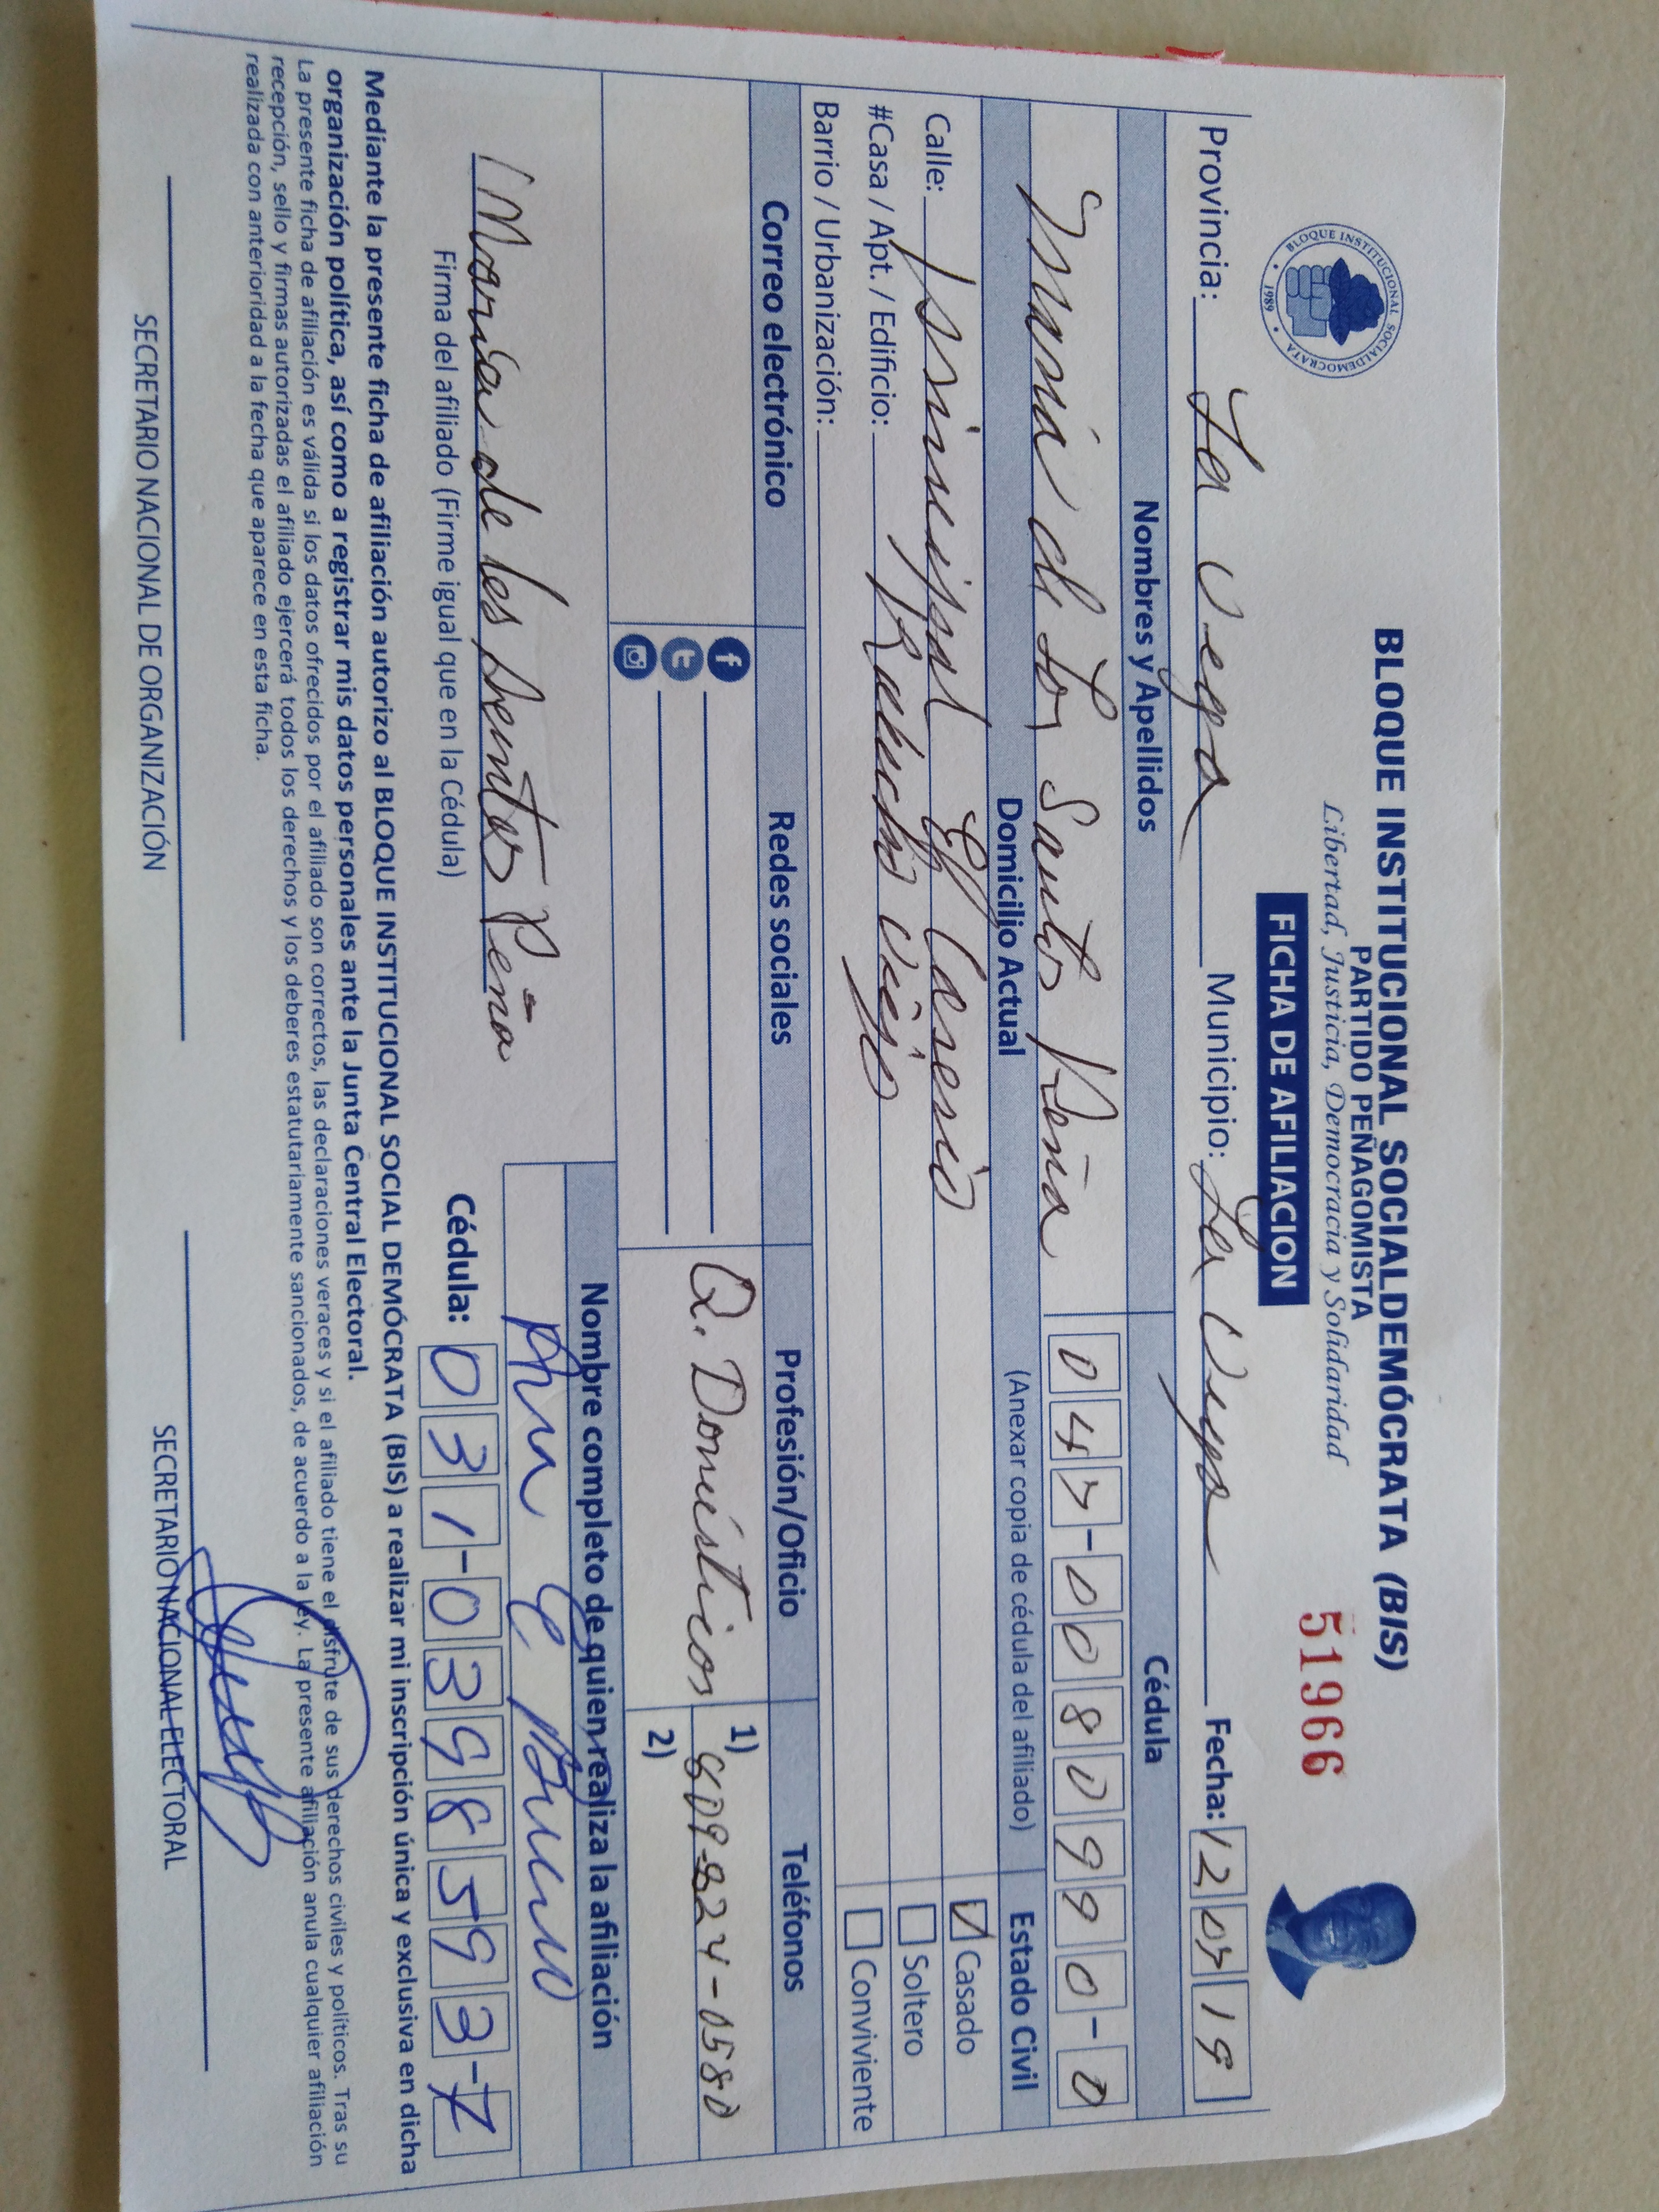 BLOQUE INSTITUCIONAL SOCIALDEMÓCRATA (BIS)
PARTIDO PEÑAGOMISTA
Libertad, Justicia, Democracia y Solidaridad
BLOQUE INSTITUCIONAL SOCIALDEMOCRATA • 1989 •
51966
FICHA DE AFILIACION
Provincia: La Vega Municipio: La Vega Fecha: 12 07 19
Nombres y Apellidos Cédula
María de Los Santos Peña 047-0080990-0
Domicilio Actual (Anexar copia de cédula del afiliado) Estado Civil
Calle: Principal El Caserio Casado
#Casa / Apt. / Edificio: Rancho Viejo Soltero
Barrio / Urbanización: Conviviente
Correo electrónico Redes sociales Profesión/Oficio Teléfonos
Q. Domésticos 1) 809-824-0580
2)
Nombre completo de quien realiza la afiliación
María de los Santos Peña
Firma del afiliado (Firme igual que en la Cédula) Cédula: 031-0398593-7
Mediante la presente ficha de afiliación autorizo al BLOQUE INSTITUCIONAL SOCIAL DEMÓCRATA (BIS) a realizar mi inscripción única y exclusiva en dicha
organización política, así como a registrar mis datos personales ante la Junta Central Electoral.
La presente ficha de afiliación es válida si los datos ofrecidos por el afiliado son correctos, las declaraciones veraces y si el afiliado tiene el disfrute de sus derechos civiles y políticos. Tras su
recepción, sello y firmas autorizadas el afiliado ejercerá todos los derechos y los deberes estatutariamente sancionados, de acuerdo a la ley. La presente afiliación anula cualquier afiliación
realizada con anterioridad a la fecha que aparece en esta ficha.
SECRETARIO NACIONAL DE ORGANIZACIÓN SECRETARIO NACIONAL ELECTORAL